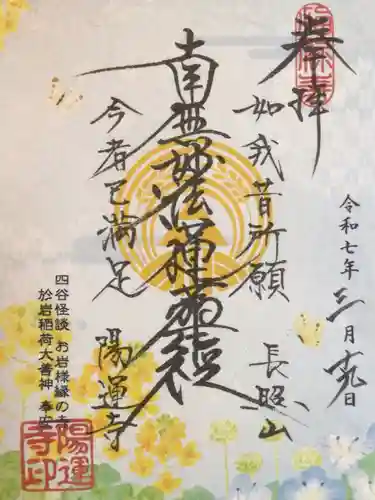 奉拝
令和七年三月十九日
如我昔所願
長照山
南無妙法蓮華経
今者已満足
陽運寺
四谷怪談 お岩様縁の寺
於岩稲荷大善神 奉安
陽運
寺印